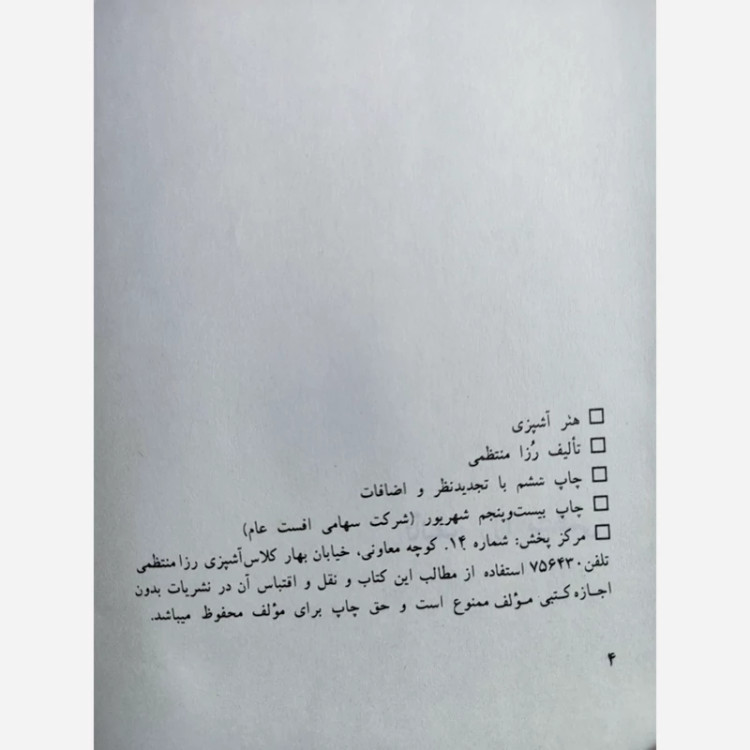 □ هنر آشپزی
□ تألیف رُزا منتظمی
□ چاپ ششم با تجدیدنظر و اضافات
□ چاپ بیست‌وپنجم شهریور (شرکت سهامی افست عام)
□ مرکز پخش: شماره ۱۴. کوچه معاونی، خیابان بهار کلاس آشپزی رزا منتظمی
تلفن ۷۵۶۴۳۰ استفاده از مطالب این کتاب و نقل و اقتباس آن در نشریات بدون
اجازه کتبی مؤلف ممنوع است و حق چاپ برای مؤلف محفوظ میباشد.
۴